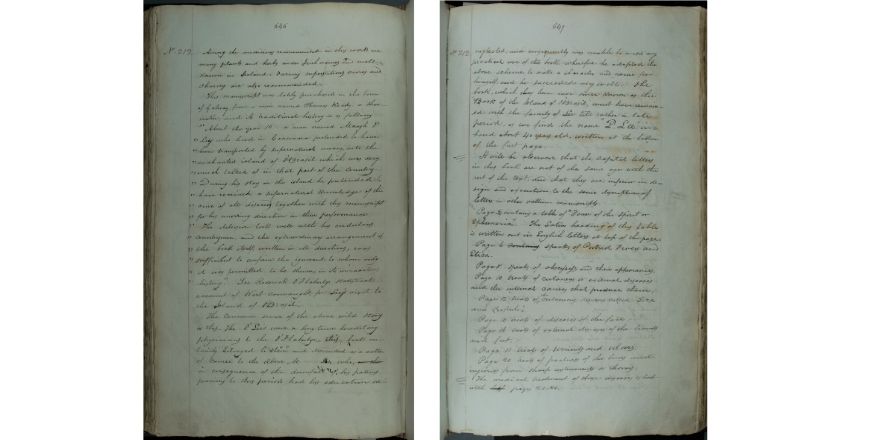 646
Nº 212. Among the medicines recommended in this work are
many plants and herbs under Irish names and well
known in Ireland. Various superstitious and
charms are also recommended.
This manuscript was lately purchased in the town
of Galway from a man named Thomas
and its traditional history is as follows
"About the year 16 a man named Morogh O'
Ley who lived in Connemara pretended to have
been transported by supernatural means into the
enchanted island of O'Brasil which was very
much talked of in that part of the Country.
During his stay in the island he pretended to
have received a supernatural knowledge of the
cure of all diseases together with this manuscript
for his unerring direction in their performance.
The delusion took well with his credulous
countrymen and the extraordinary arrangement of
the book itself, written in direction, was
sufficient to confirm the ignorant to whom only
it was permitted to be shown in its miraculous
history." See Roderick O'Flaherty's
account of West Connaught for Ley's visit to
the Island of O'Brasil.
The common sense of the above wild story
is this. The O'Lees were a long time hereditary
physicians to the O'Flahertys this book
belonged to them and descended as a matter
of course to the above M who,
in consequence of the downfall of his patrons
previous to this period had his education
647
Nº 212. neglected and consequently was unable to make any
practical use of the book, wherefore he adopted the
above scheme to make a character and name for
himself and he succeeded very well. The
book which has been ever since known as the
Book of the Island of O'Brasil, must have remained
with the family of Lee till rather a late
period as we find the name "P. Lee" in a
hand about 40 years old, written at the bottom
of the first page.
It will be observed that the Capital letters
in this book are not of the same age with the
rest of the Mst. and that they are inferior in design
and execution to the same description of
letters in other written manuscripts.
Page 2 contains a table of "Fever of the Spirit or
Ephemeria". The Latin heading of this table
is written out in English letters at top of the page.
Page 6 treats of Putrid Fevers and
Page 8 treats of abscesses and their
Page 10 treats of cutaneous and external diseases
and the internal causes that produce them.
Page 12 treats of cutaneous
and
Page 14 treats of diseases of the face.
Page 16 treats of external diseases of the hands
and feet.
Page 18 treats of wounds and ulcers.
Page 20 treats of fractures of the bones and
injuries from sharp instruments or thorns.
The medical treatment of these diseases
with pages